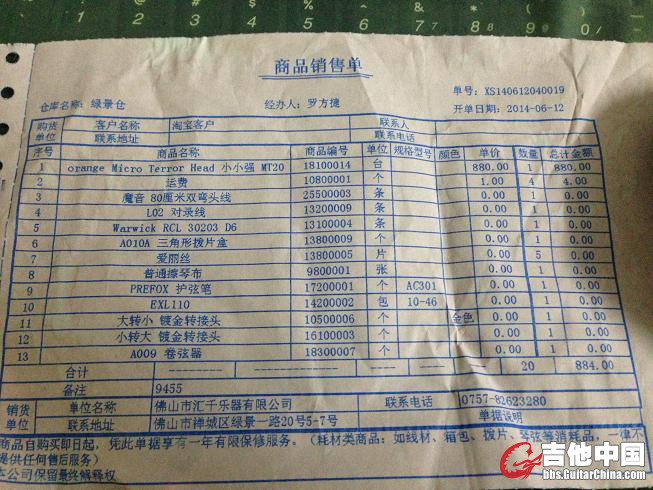 商品销售单
单号: XS140612040019
仓库名称: 绿景仓 经办人: 罗方捷 开单日期: 2014-06-12
购货单位 客户名称 淘宝客户 联系人
联系地址 联系电话
序号 商品名称 商品编号 单位 规格型号 颜色 单价 数量 总计金额
1 orange Micro Terror Head 小小强 MT20 18100014 台 880.00 1 880.00
2 运费 10800001 个 1.00 4 4.00
3 魔音 80厘米双弯头线 25500003 条 0.00 1 0.00
4 L02 对录线 13200009 条 0.00 1 0.00
5 Warwick RCL 30203 D6 13100004 条 0.00 1 0.00
6 A010A 三角形拨片盒 13800009 个 0.00 1 0.00
7 爱丽丝 13800005 片 0.00 5 0.00
8 普通擦琴布 9800001 张 0.00 1 0.00
9 PREFOX 护弦笔 17200001 个 AC301 0.00 1 0.00
10 EXL110 14200002 包 10-46 0.00 1 0.00
11 大转小 镀金转接头 10500006 个 金色 0.00 1 0.00
12 小转大 镀金转接头 16100003 个 0.00 1 0.00
13 A009 卷弦器 18300007 个 0.00 1 0.00
合计 20 884.00
备注 9455
销货单位 单位名称 佛山市汇千乐器有限公司 联系电话 0757-82623280
联系地址 佛山市禅城区绿景一路20号5-7号 单据说明
商品自购买即日起，凭此单据享有一年有限保修服务。（耗材类商品：如线材、箱包、拨片、琴弦等消耗品，一律不
提供任何售后服务）
本公司保留最终解释权
吉他中国
bbs.GuitarChina.com